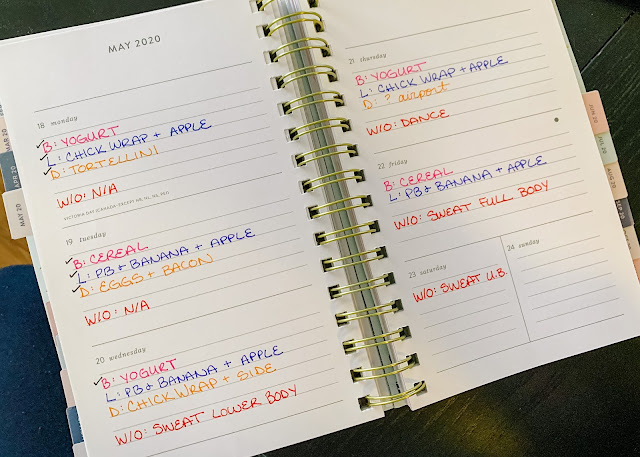 MAY 2020
18 monday
B: YOGURT
L: CHICK WRAP + APPLE
D: TORTELLINI
W/O: N/A
19 tuesday
B: CEREAL
L: PB & BANANA + APPLE
D: EGGS + BACON
W/O: N/A
20 wednesday
B: YOGURT
L: PB & BANANA + APPLE
D: CHICK WRAP + SIDE
W/O: SWEAT LOWER BODY
21 thursday
B: YOGURT
L: CHICK WRAP + APPLE
D: ? airport
W/O: DANCE
22 friday
B: CEREAL
L: PB & BANANA + APPLE
W/O: SWEAT FULL BODY
23 saturday
W/O: SWEAT U.B.
24 sunday
MAR 20
APR 20
MAY 20
JUN 20
JUL 20
AUG 20